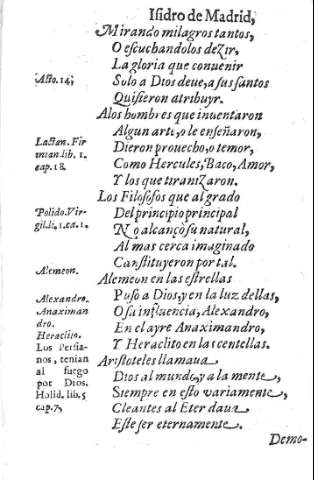 Isidro de Madrid,
Mirando milagros tantos,
O escuchandolos dezir,
La gloria que conuenir
Solo a Dios deue, a sus santos
Quisieron atribuyr.
A los hombres que inuentaron
Algun arte, o le enseñaron,
Dieron prouecho, o temor,
Como Hercules, Baco, Amor,
Y los que tiranizaron.
Los Filosofos que al grado
Del principio principal
No alcançò su natural,
Al mas cerca imaginado
Constituyeron por tal.
Alemeon en las estrellas
Puso a Dios, y en la luz dellas,
O su influencia, Alexandro,
En el ayre Anaximandro,
Y Heraclito en las centellas.
Aristoteles llamaua
Dios al mundo, y a la mente,
Siempre en esto variamente,
Cleantes al Eter daua
Este ser eternamente.
Demo-
Acto. 14,
Lactan. Fir
mian. lib. 1.
cap. 18.
Polido. Vir-
gil. li. 1. ca. 1.
Alemeon.
Alexandro.
Anaximan
dro.
Heraclito.
Los Persia-
nos, tenian
al fuego
por Dios.
lib. 5
cap. 7,